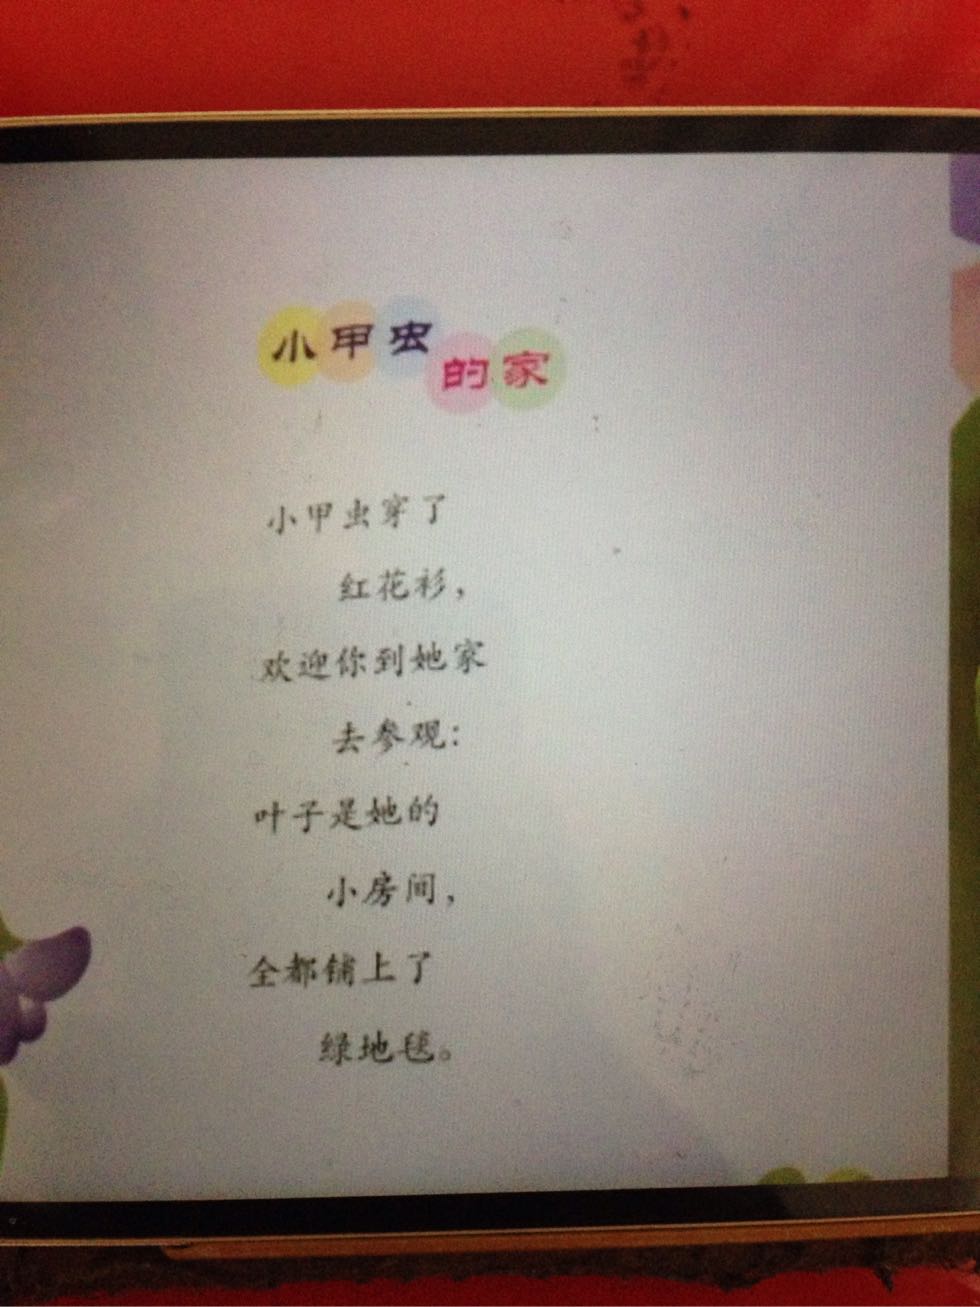 小甲虫的家
小甲虫穿了
红花衫，
欢迎你到她家
去参观：
叶子是她的
小房间，
全都铺上了
绿地毯。